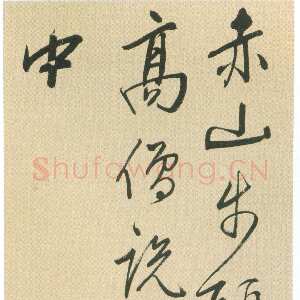 赤山步
高僧说
中
Shufawang.CN